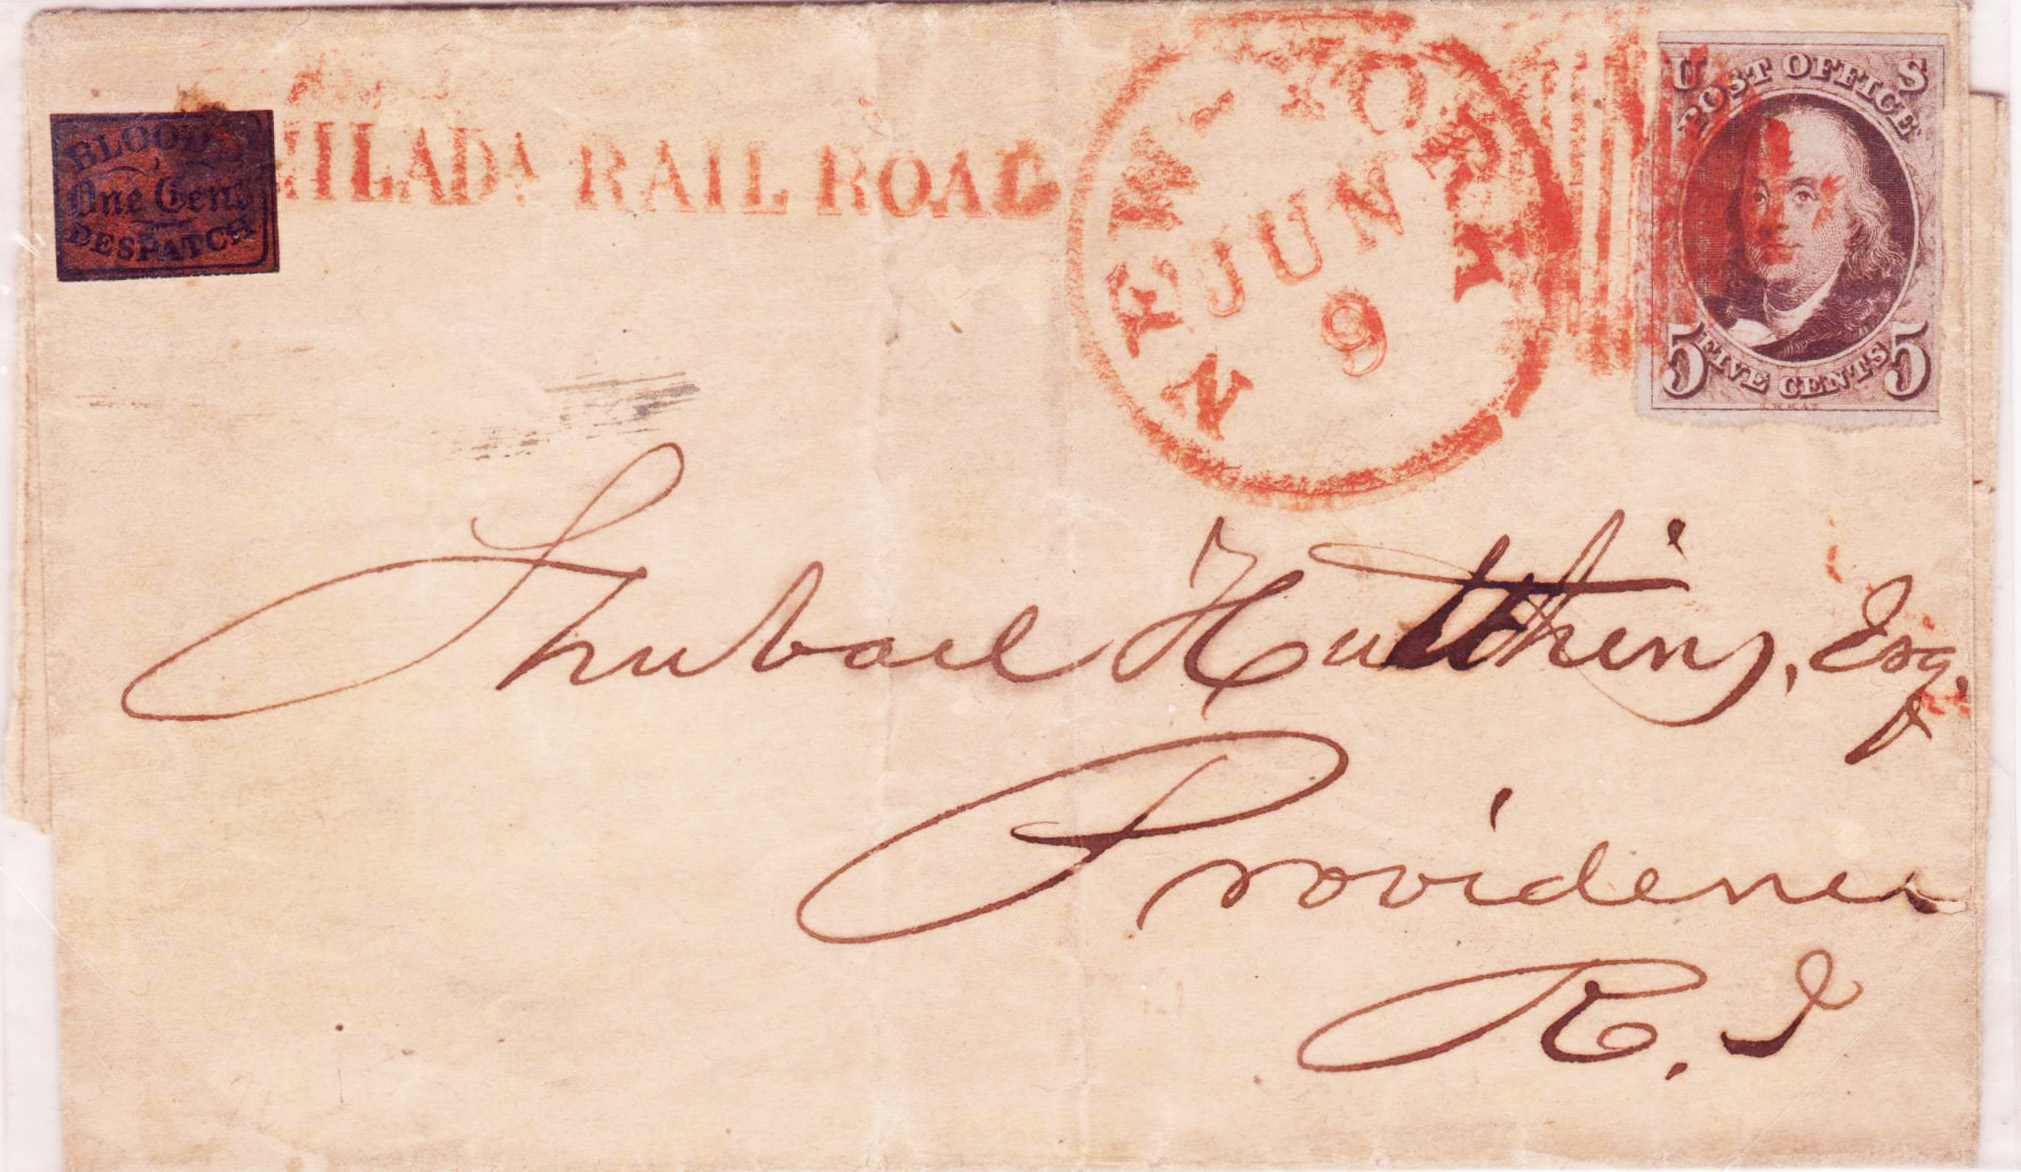 BLOOD'S
One Cent
DESPATCH
HILADA RAIL ROAD
NEW YORK
JUN
9
U S
POST OFFICE
5 FIVE CENTS 5
Shubael Hutchins, Esq.
Providence
R. I